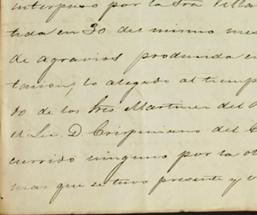 interpuso por la Sra Villa
tida en 30 del mismo mes
de agravios producida en
tacion, lo alegado al tiemp
do de los tres Martinez del
el Lic. D Crispiniano del C
currido ninguno por la ot
mas que se tuvo presente y v